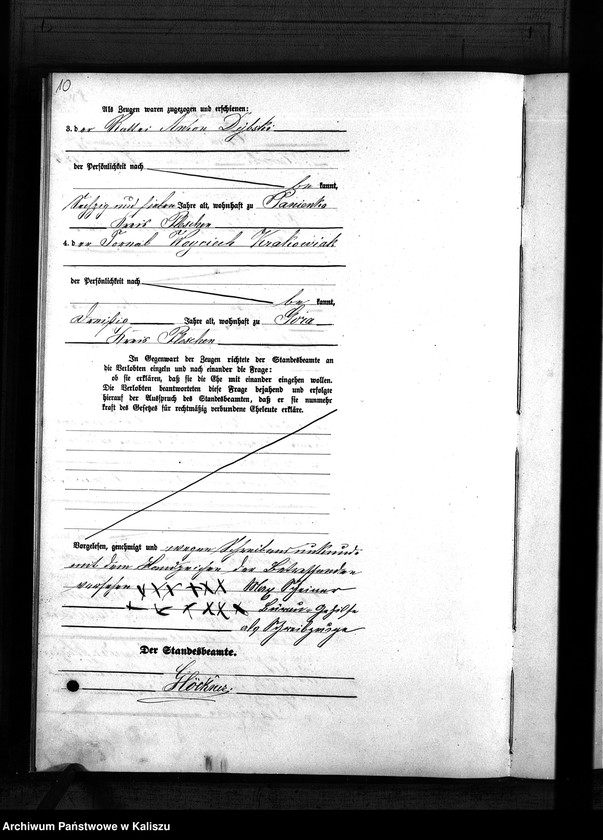 10
Als Zeugen waren zugezogen und erschienen:
3. der Anton Dybski
der Persönlichkeit nach
be kannt,
Sechzig und sieben Jahre alt, wohnhaft zu Panienka
Kreis Pleschen
4. der Fornal Woyciech Krakowiak
der Persönlichkeit nach
be kannt,
dreißig Jahre alt, wohnhaft zu Góra
Kreis Pleschen
In Gegenwart der Zeugen richtete der Standesbeamte an
die Verlobten einzeln und nach einander die Frage:
ob sie erklären, daß sie die Ehe mit einander eingehen wollen.
Die Verlobten beantworteten diese Frage bejahend und erfolgte
hierauf der Ausspruch des Standesbeamten, daß er sie nunmehr
kraft des Gesetzes für rechtmäßig verbundene Eheleute erkläre.
Vorgelesen, genehmigt und wegen Schreibensunkunde
mit dem Handzeichen der Betreffenden
versehen xxx xxx Max
xxx xxx Gehilfe
als Schreibzeuge
Der Standesbeamte.
Glöckner.
Archiwum Państwowe w Kaliszu